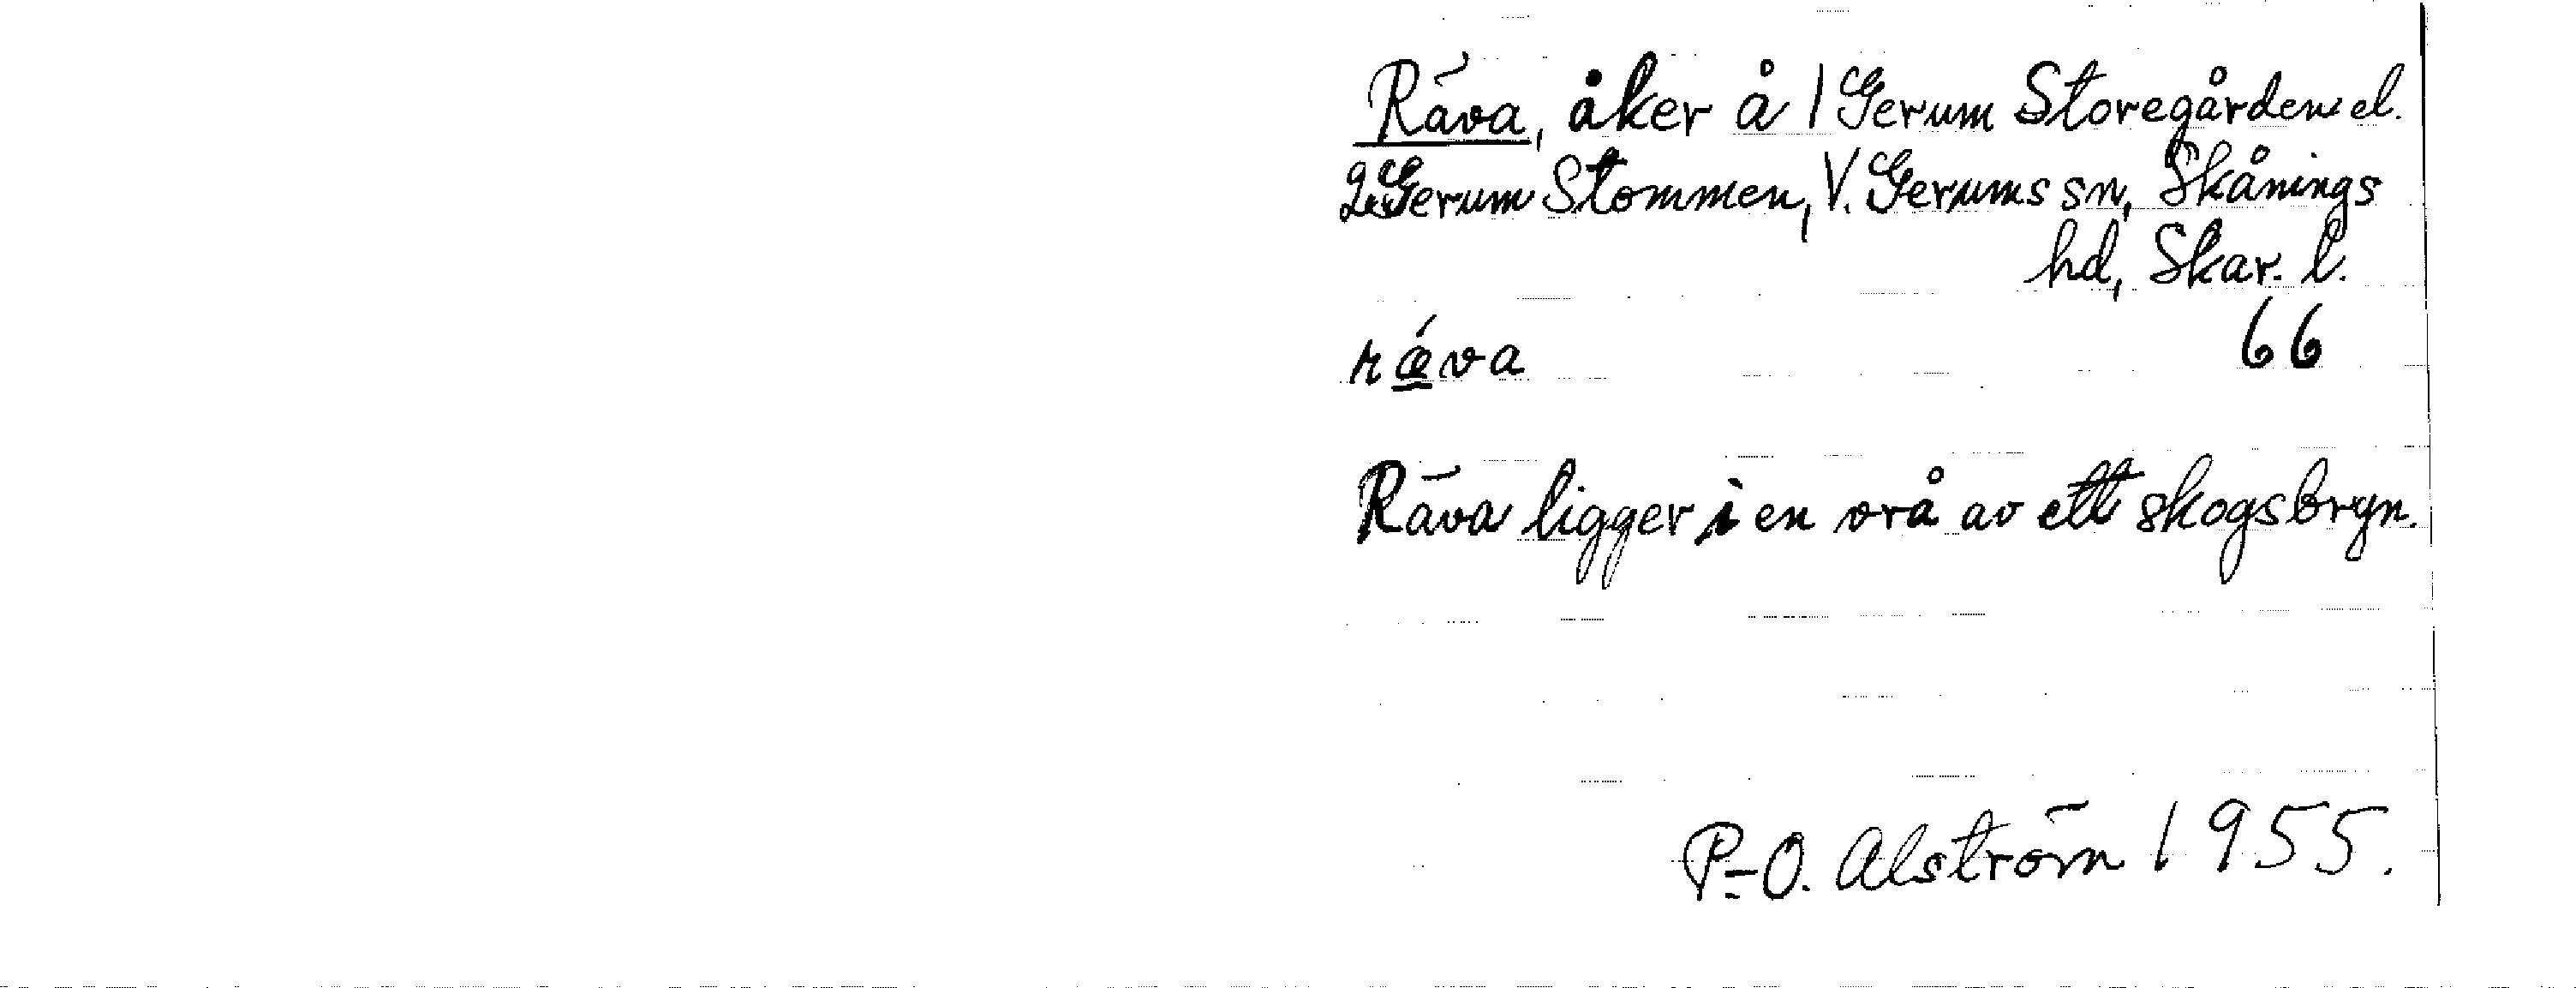 Räva, åker å 1 Gerum Storegården el.
2 Gerum Stommen, V. Gerums sn, Skånings
hd, Skar. l.
rǽva 66
Räva ligger i en vrå av ett skogsbryn.
P-O. Alström 1955.